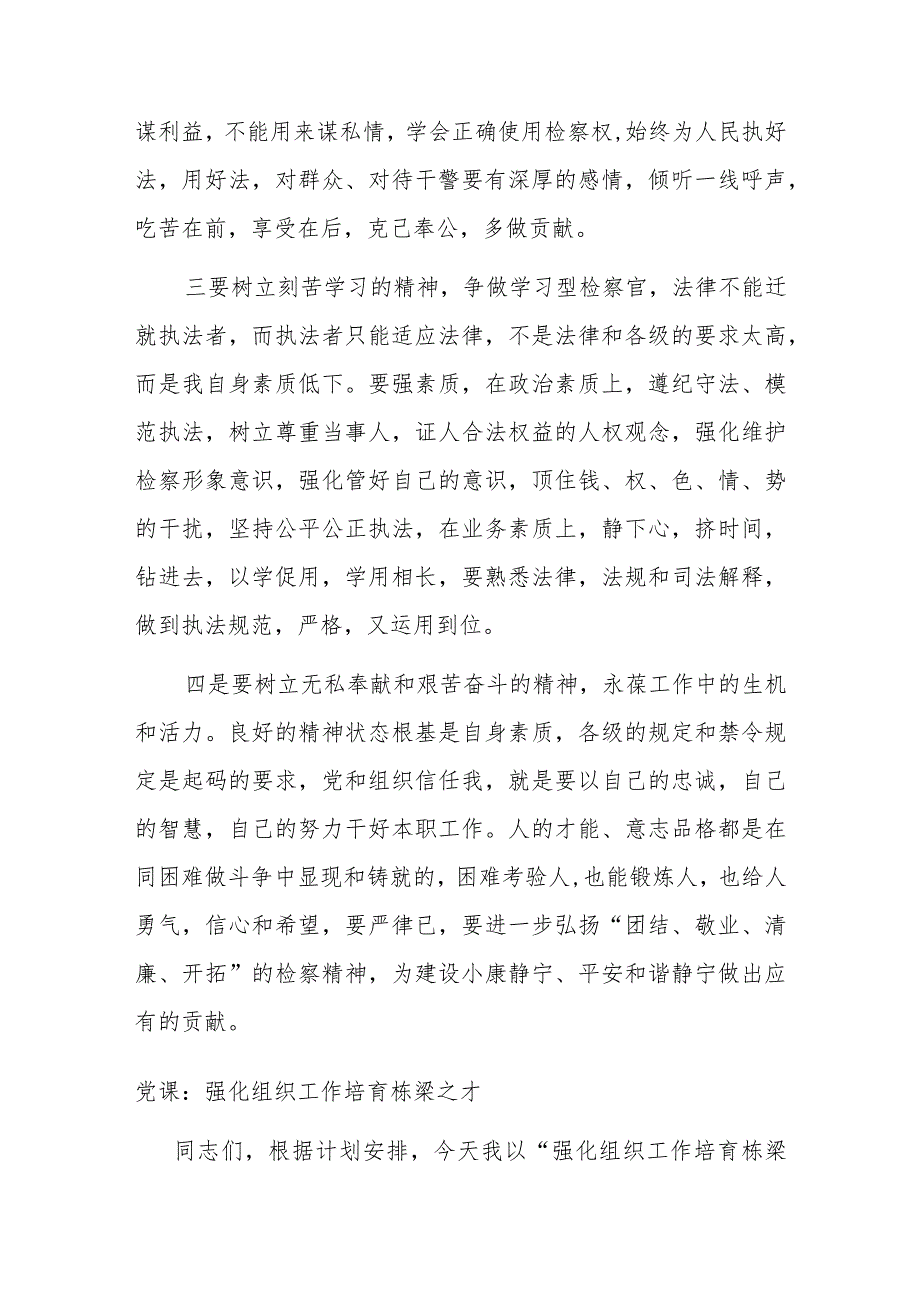 谋利益，不能用来谋私情，学会正确使用检察权,始终为人民执好
法，用好法，对群众、对待干警要有深厚的感情，倾听一线呼声，
吃苦在前，享受在后，克己奉公，多做贡献。
三要树立刻苦学习的精神，争做学习型检察官，法律不能迁
就执法者，而执法者只能适应法律，不是法律和各级的要求太高，
而是我自身素质低下。要强素质，在政治素质上，遵纪守法、模
范执法，树立尊重当事人，证人合法权益的人权观念，强化维护
检察形象意识，强化管好自己的意识，顶住钱、权、色、情、势
的干扰，坚持公平公正执法，在业务素质上，静下心，挤时间，
钻进去，以学促用，学用相长，要熟悉法律，法规和司法解释，
做到执法规范，严格，又运用到位。
四是要树立无私奉献和艰苦奋斗的精神，永葆工作中的生机
和活力。良好的精神状态根基是自身素质，各级的规定和禁令规
定是起码的要求，党和组织信任我，就是要以自己的忠诚，自己
的智慧，自己的努力干好本职工作。人的才能、意志品格都是在
同困难做斗争中显现和铸就的，困难考验人,也能锻炼人，也给人
勇气，信心和希望，要严律已，要进一步弘扬“团结、敬业、清
廉、开拓”的检察精神，为建设小康静宁、平安和谐静宁做出应
有的贡献。
党课：强化组织工作培育栋梁之才
同志们，根据计划安排，今天我以“强化组织工作培育栋梁